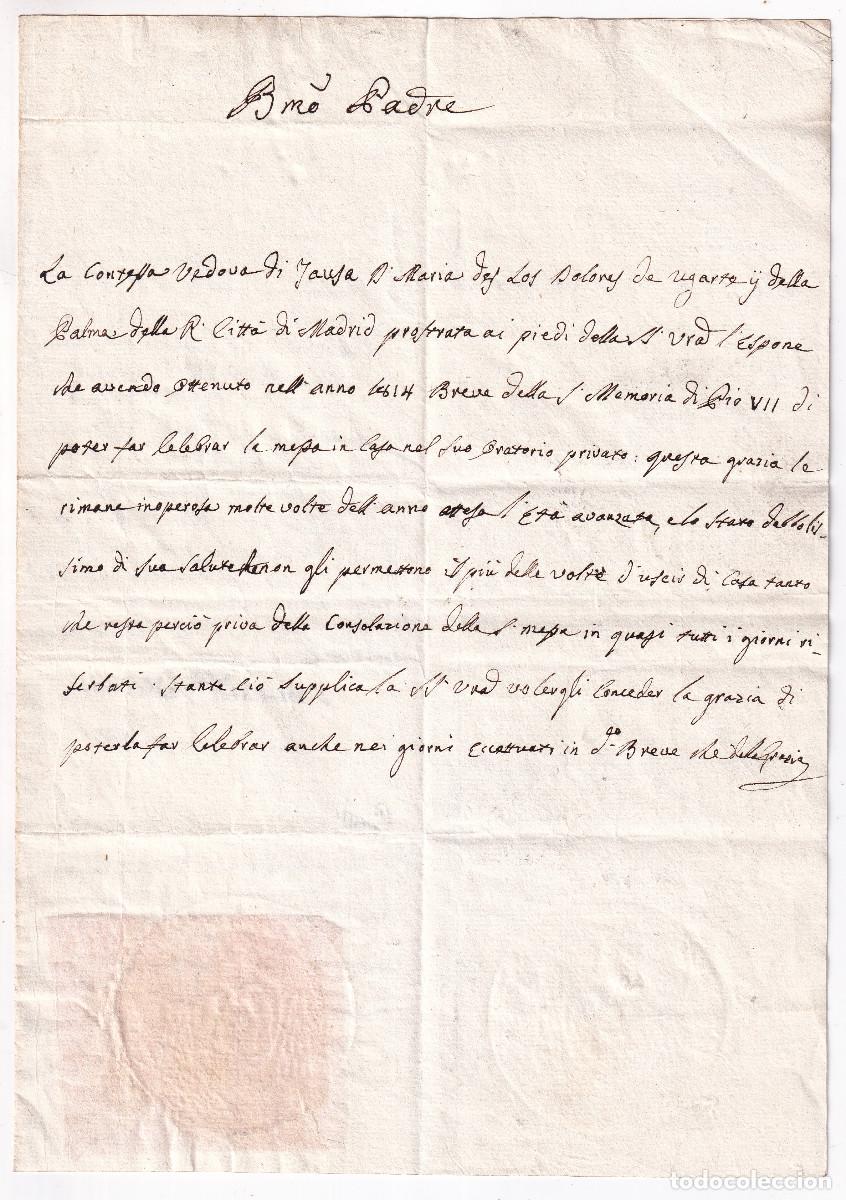 Bmõ Padre
La Contessa Vedova di Jausa D. Maria des Los Dolores de Ugarte ÿ della
Palma della R. Città di Madrid prostrata ai piedi della S. Vrã l'Espone
che avendo Ottenuto nell' anno 1814 Breve della S. Memoria di Pio VII di
poter far Celebrar la messa in Casa nel suo Oratorio privato: questa grazia le
rimane inoperosa molte volte dell' anno attesa l'Età avanzata, e lo stato debbolis-
simo di sua salute che non gli permettono il più delle volte d'uscir di Casa tanto
che resta perciò priva della Consolazione della S. messa in quasi tutti i giorni ri-
serbati. Stante Ciò supplica la S. Vrã volergli Conceder la grazia di
poterla far Celebrar anche nei giorni Eccettuati in dto. Breve che della Grazia
todocoleccion